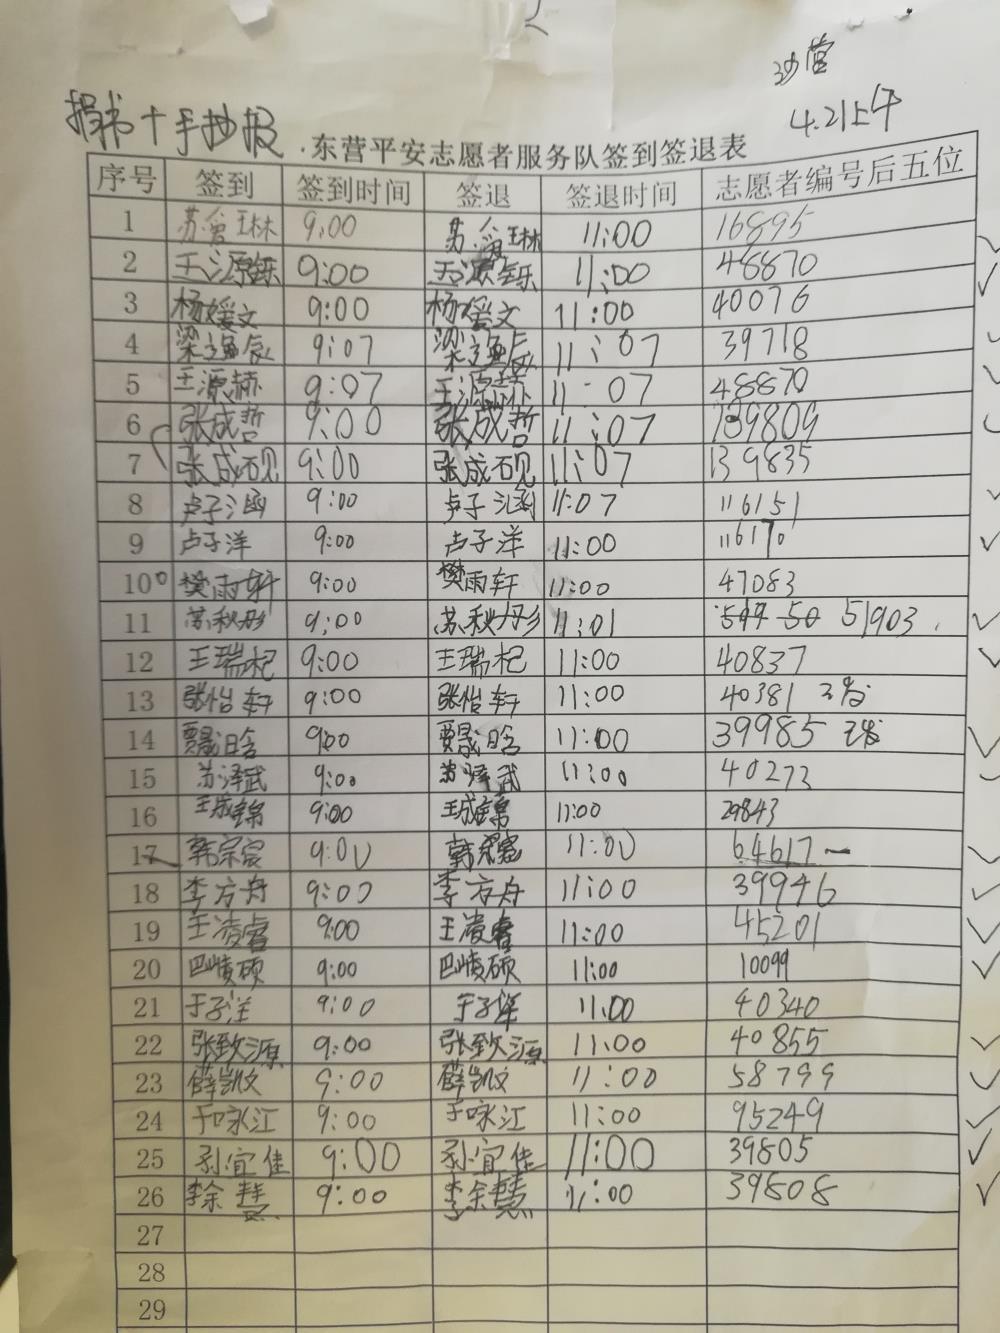 沙营
4.21上午
捐书十手抄报
东营平安志愿者服务队签到签退表
序号 签到 签到时间 签退 签退时间 志愿者编号后五位
1 苏爱琳 9:00 苏爱琳 11:00 16895
2 王源铄 9:00 王源铄 11:00 48870
3 杨媛文 9:00 杨媛文 11:00 40076
4 9:07 11:07 39718
5 王源赫 9:07 王源赫 11:07 48870
6 张成哲 9:00 张成哲 11:07 139809
7 张成砚 9:00 张成砚 11:07 139835
8 卢子涵 9:00 卢子涵 11:07 116151
9 卢子洋 9:00 卢子洋 11:00 116170
10 樊雨轩 9:00 樊雨轩 11:00 47083
11 苏秋彤 9:00 苏秋彤 11:01 51903
12 王瑞杞 9:00 王瑞杞 11:00 40837
13 张怡轩 9:00 张怡轩 11:00 40381
14 贾晟晗 9:00 贾晟晗 11:00 39985
15 苏泽武 9:00 苏泽武 11:00 40273
16 王成锦 9:00 王成锦 11:00 29843
17 韩宗宸 9:00 韩宗宸 11:00 64617
18 李方舟 9:00 李方舟 11:00 39946
19 王凌睿 9:00 王凌睿 11:00 45201
20 9:00 11:00 10099
21 于子洋 9:00 于子洋 11:00 40340
22 张致源 9:00 张致源 11:00 40855
23 薛凯文 9:00 薛凯文 11:00 58799
24 于咏江 9:00 于咏江 11:00 95249
25 孙宜佳 9:00 孙宜佳 11:00 39805
26 李余慧 9:00 李余慧 11:00 39808
27
28
29